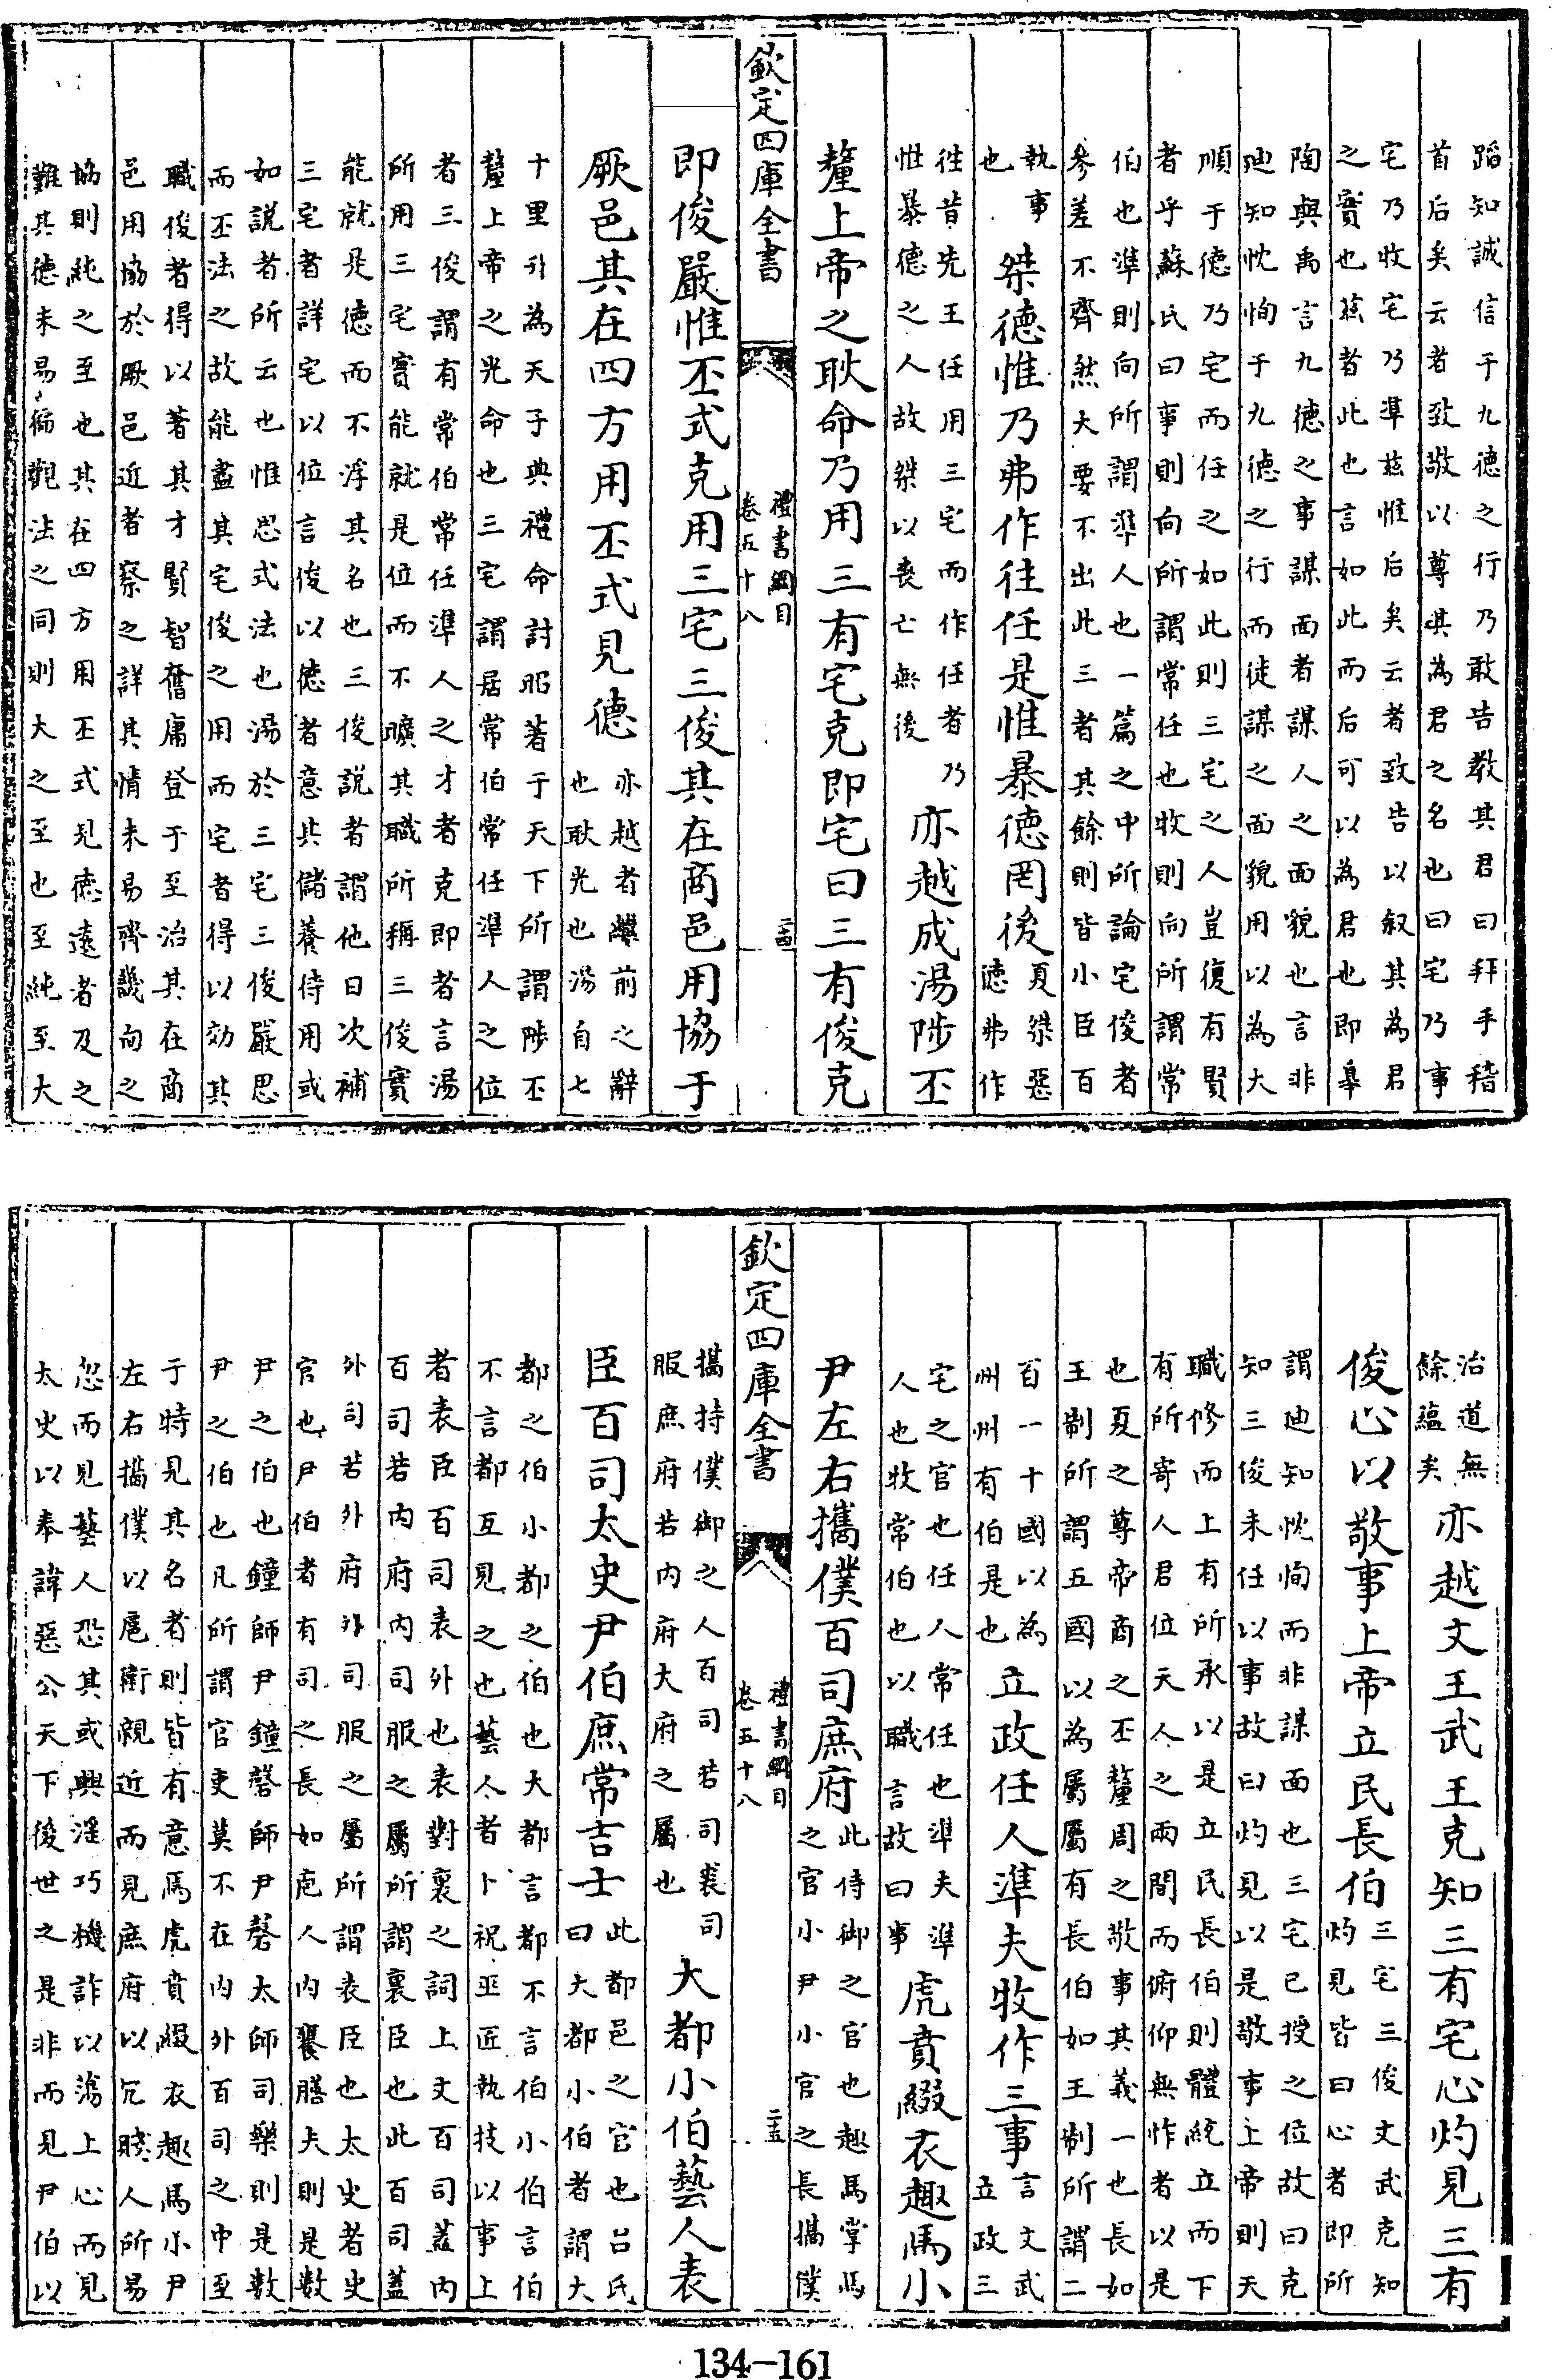 蹈知誠信于九德之行乃敢告教其君曰拜手稽
首后矣云者致敬以尊其為君之名也曰宅乃事
宅乃牧宅乃準兹惟后矣云者致告以叙其為君
之實也兹者此也言如此而后可以為君也即臯
陶與禹言九德之事謀面者謀人之面貌也言非
廸知忱恂于九德之行而徒謀之面貌用以為大
順于德乃宅而任之如此則三宅之人豈復有賢
者乎蘇氏曰事則向所謂常任也牧則向所謂常
伯也準則向所謂準人也一篇之中所論宅俊者
參差不齊然大要不出此三者其餘則皆小臣百
執事
也
桀德惟乃弗作往任是惟暴德罔後
夏桀惡
德弗作
往昔先王任用三宅而作任者乃
惟暴德之人故桀以喪亡無後
亦越成湯陟丕
釐上帝之耿命乃用三有宅克即宅曰三有俊克
欽定四庫全書
禮書綱目
卷五十八
二西
即俊嚴惟丕式克用三宅三俊其在商邑用協于
厥邑其在四方用丕式見德
亦越者繼前之辭
也耿光也湯自七
十里升為天子典禮命討昭著于天下所謂陟丕
釐上帝之光命也三宅謂居常伯常任準人之位
者三俊謂有常伯常任準人之才者克即者言湯
所用三宅實能就是位而不曠其職所稱三俊實
能就是德而不浮其名也三俊說者謂他日次補
三宅者詳宅以位言俊以德者意其儲養待用或
如說者所云也惟思式法也湯於三宅三俊嚴思
而丕法之故能盡其宅俊之用而宅者得以効其
職俊者得以著其才賢智奮庸登于至治其在商
邑用協於厥邑近者察之詳其情未易齊畿向之
協則純之至也其在四方用丕式見德遠者及之
難其德未易徧觀法之同則大之至也至純至大
治道無
餘蘊矣
亦越文王武王克知三有宅心灼見三有
俊心以敬事上帝立民長伯
三宅三俊文武克知
灼見皆曰心者即所
謂廸知忱恂而非謀面也三宅已授之位故曰克
知三俊未任以事故曰灼見以是敬事上帝則天
職修而上有所承以是立民長伯則體統立而下
有所寄人君位天人之兩間而俯仰無怍者以是
也夏之尊帝商之丕釐周之敬事其義一也長如
王制所謂五國以為屬屬有長伯如王制所謂二
百一十國以為
州州有伯是也
立政任人準夫牧作三事
言文武
立政三
宅之官也任人常任也準夫準
人也牧常伯也以職言故曰事
虎賁綴衣趣馬小
尹左右攜僕百司庶府
此侍御之官也趣馬掌馬
之官小尹小官之長攜僕
欽定四庫全書
禮書綱目
卷五十八
二五
攜持僕御之人百司若司裘司
服庶府若内府大府之屬也
大都小伯藝人表
臣百司太史尹伯庶常吉士
此都邑之官也吕氏
曰大都小伯者謂大
都之伯小都之伯也大都言都不言伯小伯言伯
不言都互見之也藝人者卜祝巫匠執技以事上
者表臣百司表外也表對裏之詞上文百司蓋内
百司若内府内司服之屬所謂裏臣也此百司蓋
外司若外府外司服之屬所謂表臣也太史者史
官也尹伯者有司之長如庖人内饔膳夫則是數
尹之伯也鐘師尹鐘磬師尹磬太師司樂則是數
尹之伯也凡所謂官吏莫不在内外百司之中至
于特見其名者則皆有意焉虎賁綴衣趣馬小尹
左右攜僕以扈衛親近而見庶府以冗賤人所易
忽而見藝人恐其或興淫巧機詐以蕩上心而見
太史以奉諱惡公天下後世之是非而見尹伯以
134-161